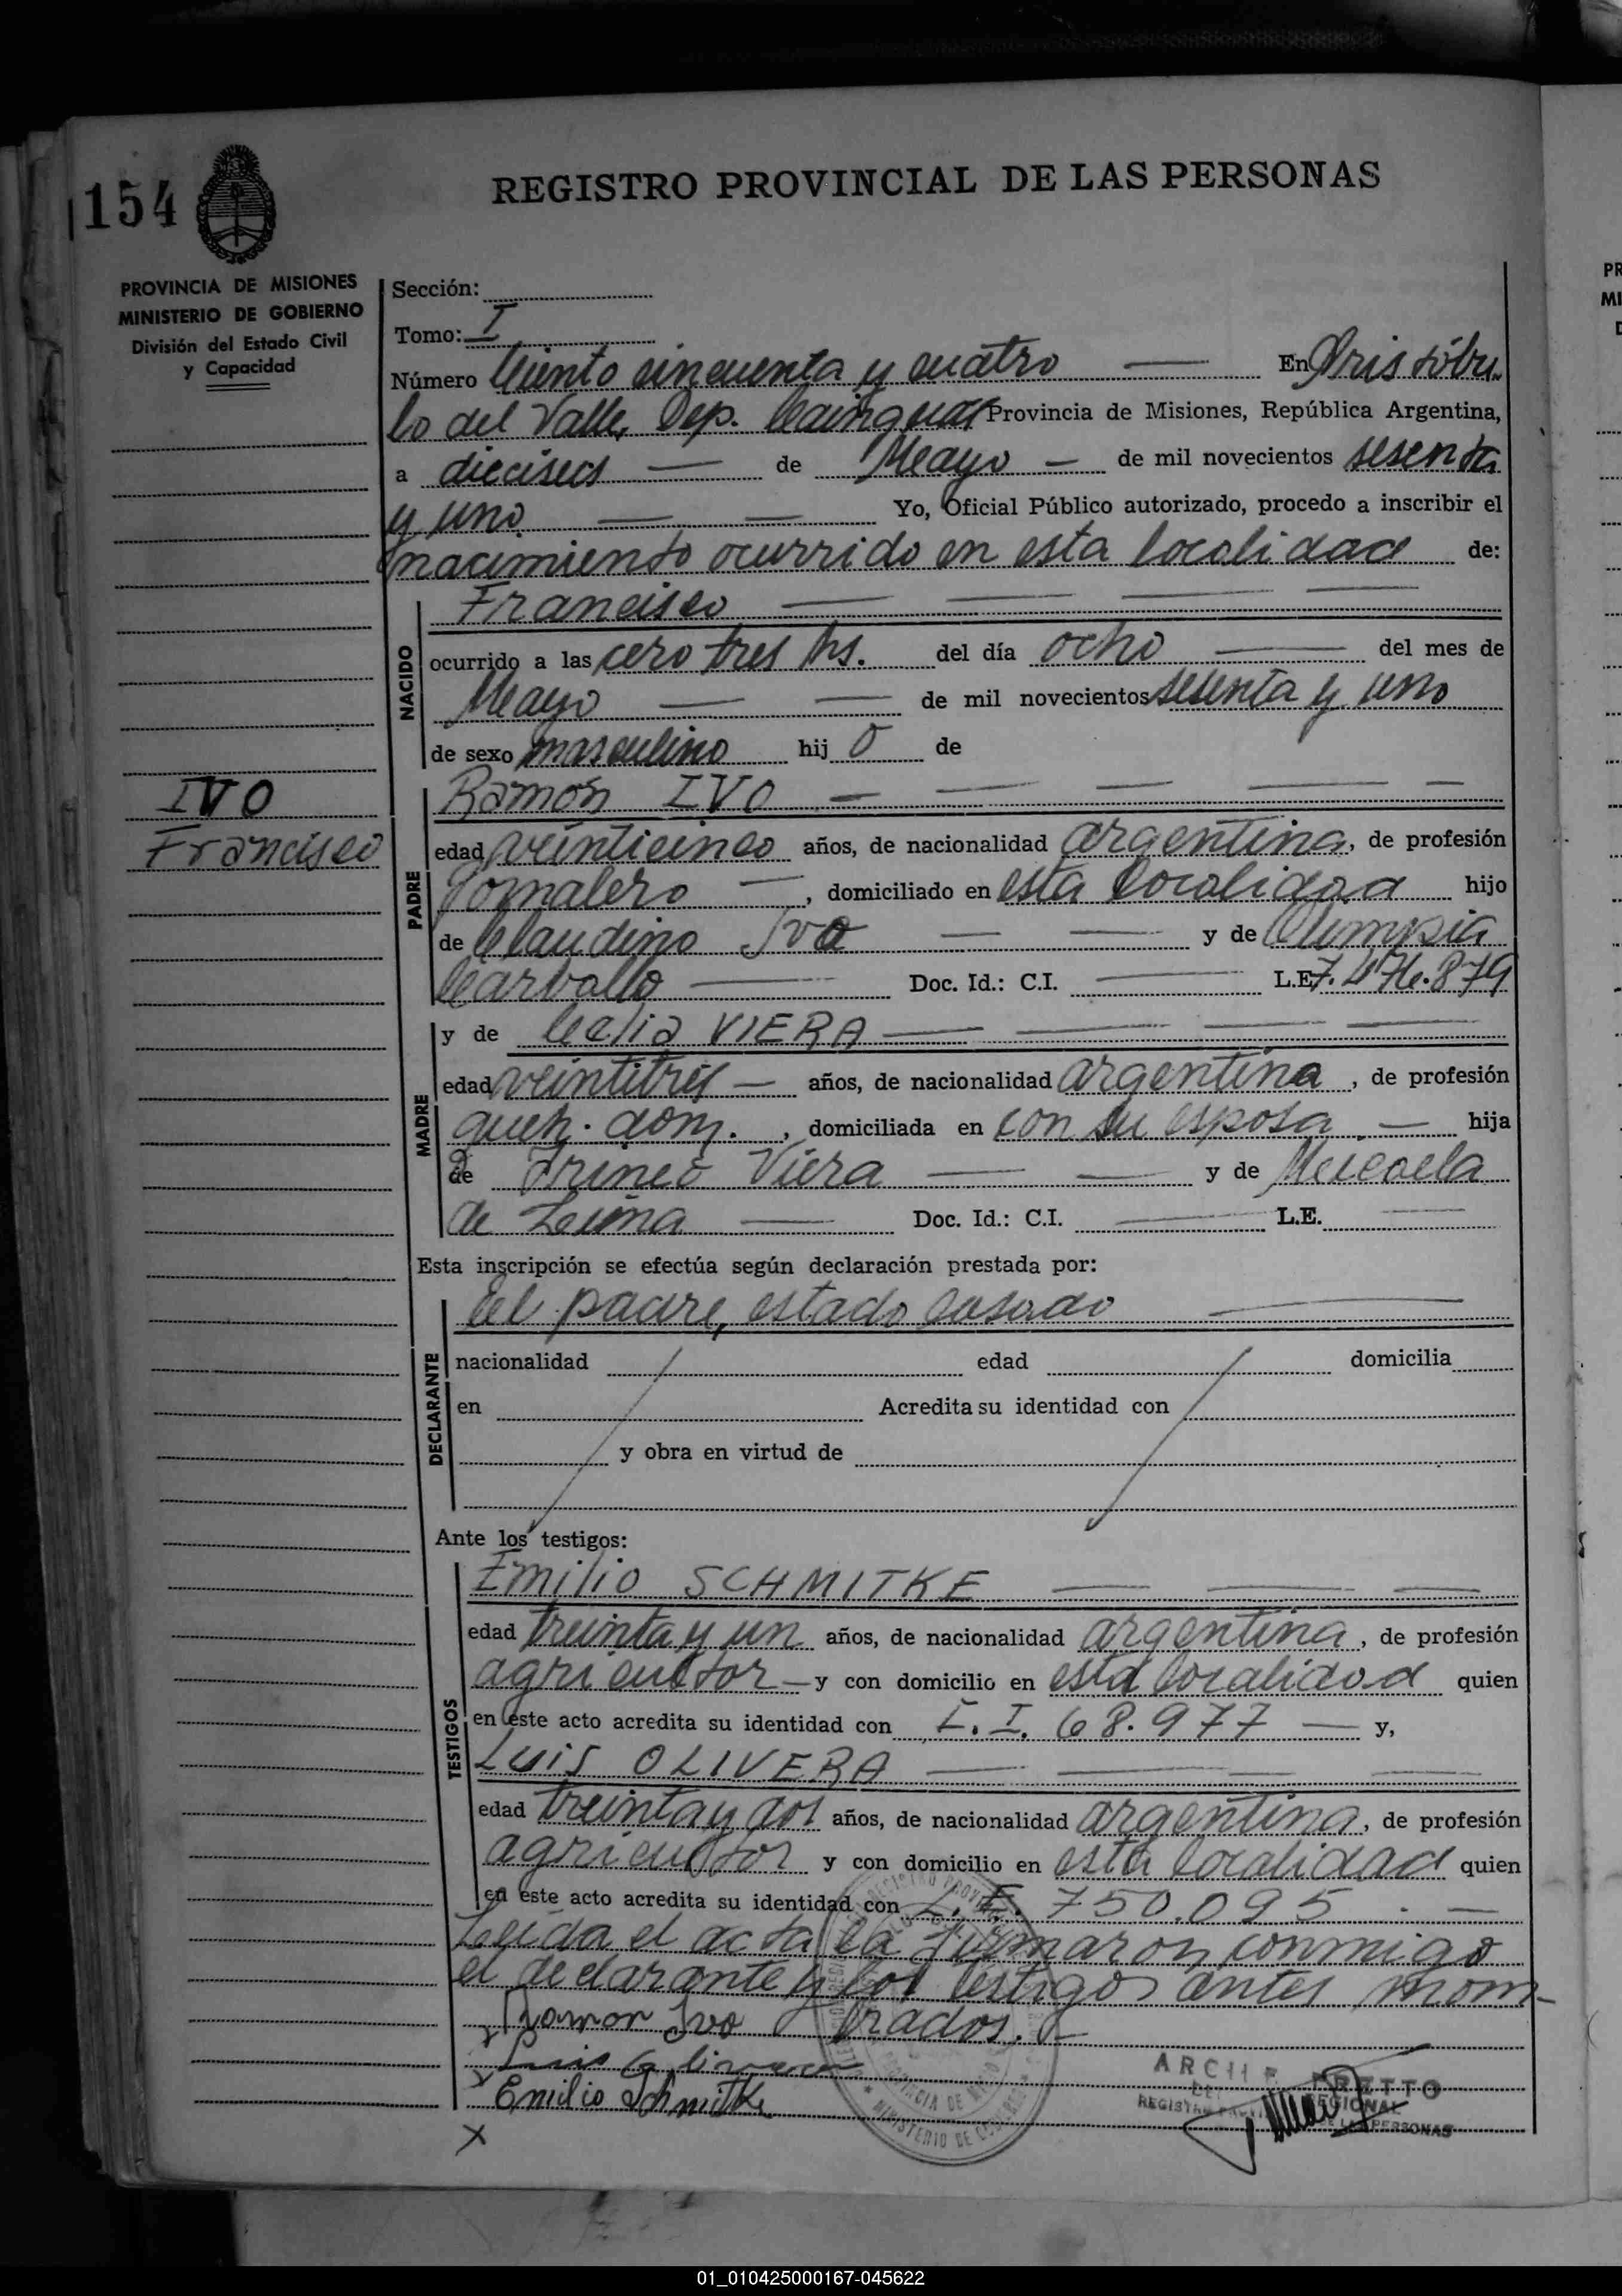 154
REGISTRO PROVINCIAL DE LAS PERSONAS
PROVINCIA DE MISIONES
MINISTERIO DE GOBIERNO
División del Estado Civil
y Capacidad
Sección:
Tomo: I
Número Ciento cincuenta y cuatro — En Cristóbu-
lo del Valle, Dep. Cainguas Provincia de Misiones, República Argentina,
a dieciseis — de Mayo — de mil novecientos sesenta
y uno — — Yo, Oficial Público autorizado, procedo a inscribir el
nacimiento ocurrido en esta localidad de:
NACIDO
Francisco — — — —
ocurrido a las cero tres hs. del día ocho — del mes de
Mayo — — de mil novecientos sesenta y uno
de sexo masculino hij o de
IVO
Francisco
PADRE
Ramón IVO — — — — —
edad veinticinco años, de nacionalidad argentina, de profesión
Jornalero —, domiciliado en esta localidad hijo
de Claudino Ivo — — y de Olimpia
Carvallo — Doc. Id.: C.I. — L.E. 7.476.879
MADRE
y de Celia VIERA — — — —
edad veintitres — años, de nacionalidad argentina, de profesión
queh. dom., domiciliada en con su esposo — hija
de Irineo Viera — — y de Micaela
de Leima — Doc. Id.: C.I. — L.E. —
Esta inscripción se efectúa según declaración prestada por:
DECLARANTE
el padre, estado casado —
nacionalidad edad domicilia
en Acredita su identidad con
y obra en virtud de
Ante los testigos:
TESTIGOS
Emilio SCHMITKE — — —
edad treinta y un años, de nacionalidad argentina, de profesión
agricultor — y con domicilio en esta localidad quien
en este acto acredita su identidad con C.I. 68.977 — y,
Luis OLIVERA — — — —
edad treinta y dos años, de nacionalidad argentina, de profesión
agricultor y con domicilio en esta localidad quien
en este acto acredita su identidad con L.E. 750.095 . —
Leída el acta la firmaron conmigo
el declarante y los testigos antes nom-
brados. —
x Ramon Ivo
x Luis Olivera
Emilio Schmitke
x
MINISTERIO DE GOBIERNO
REGIONAL
DE LAS PERSONAS
01_010425000167-045622